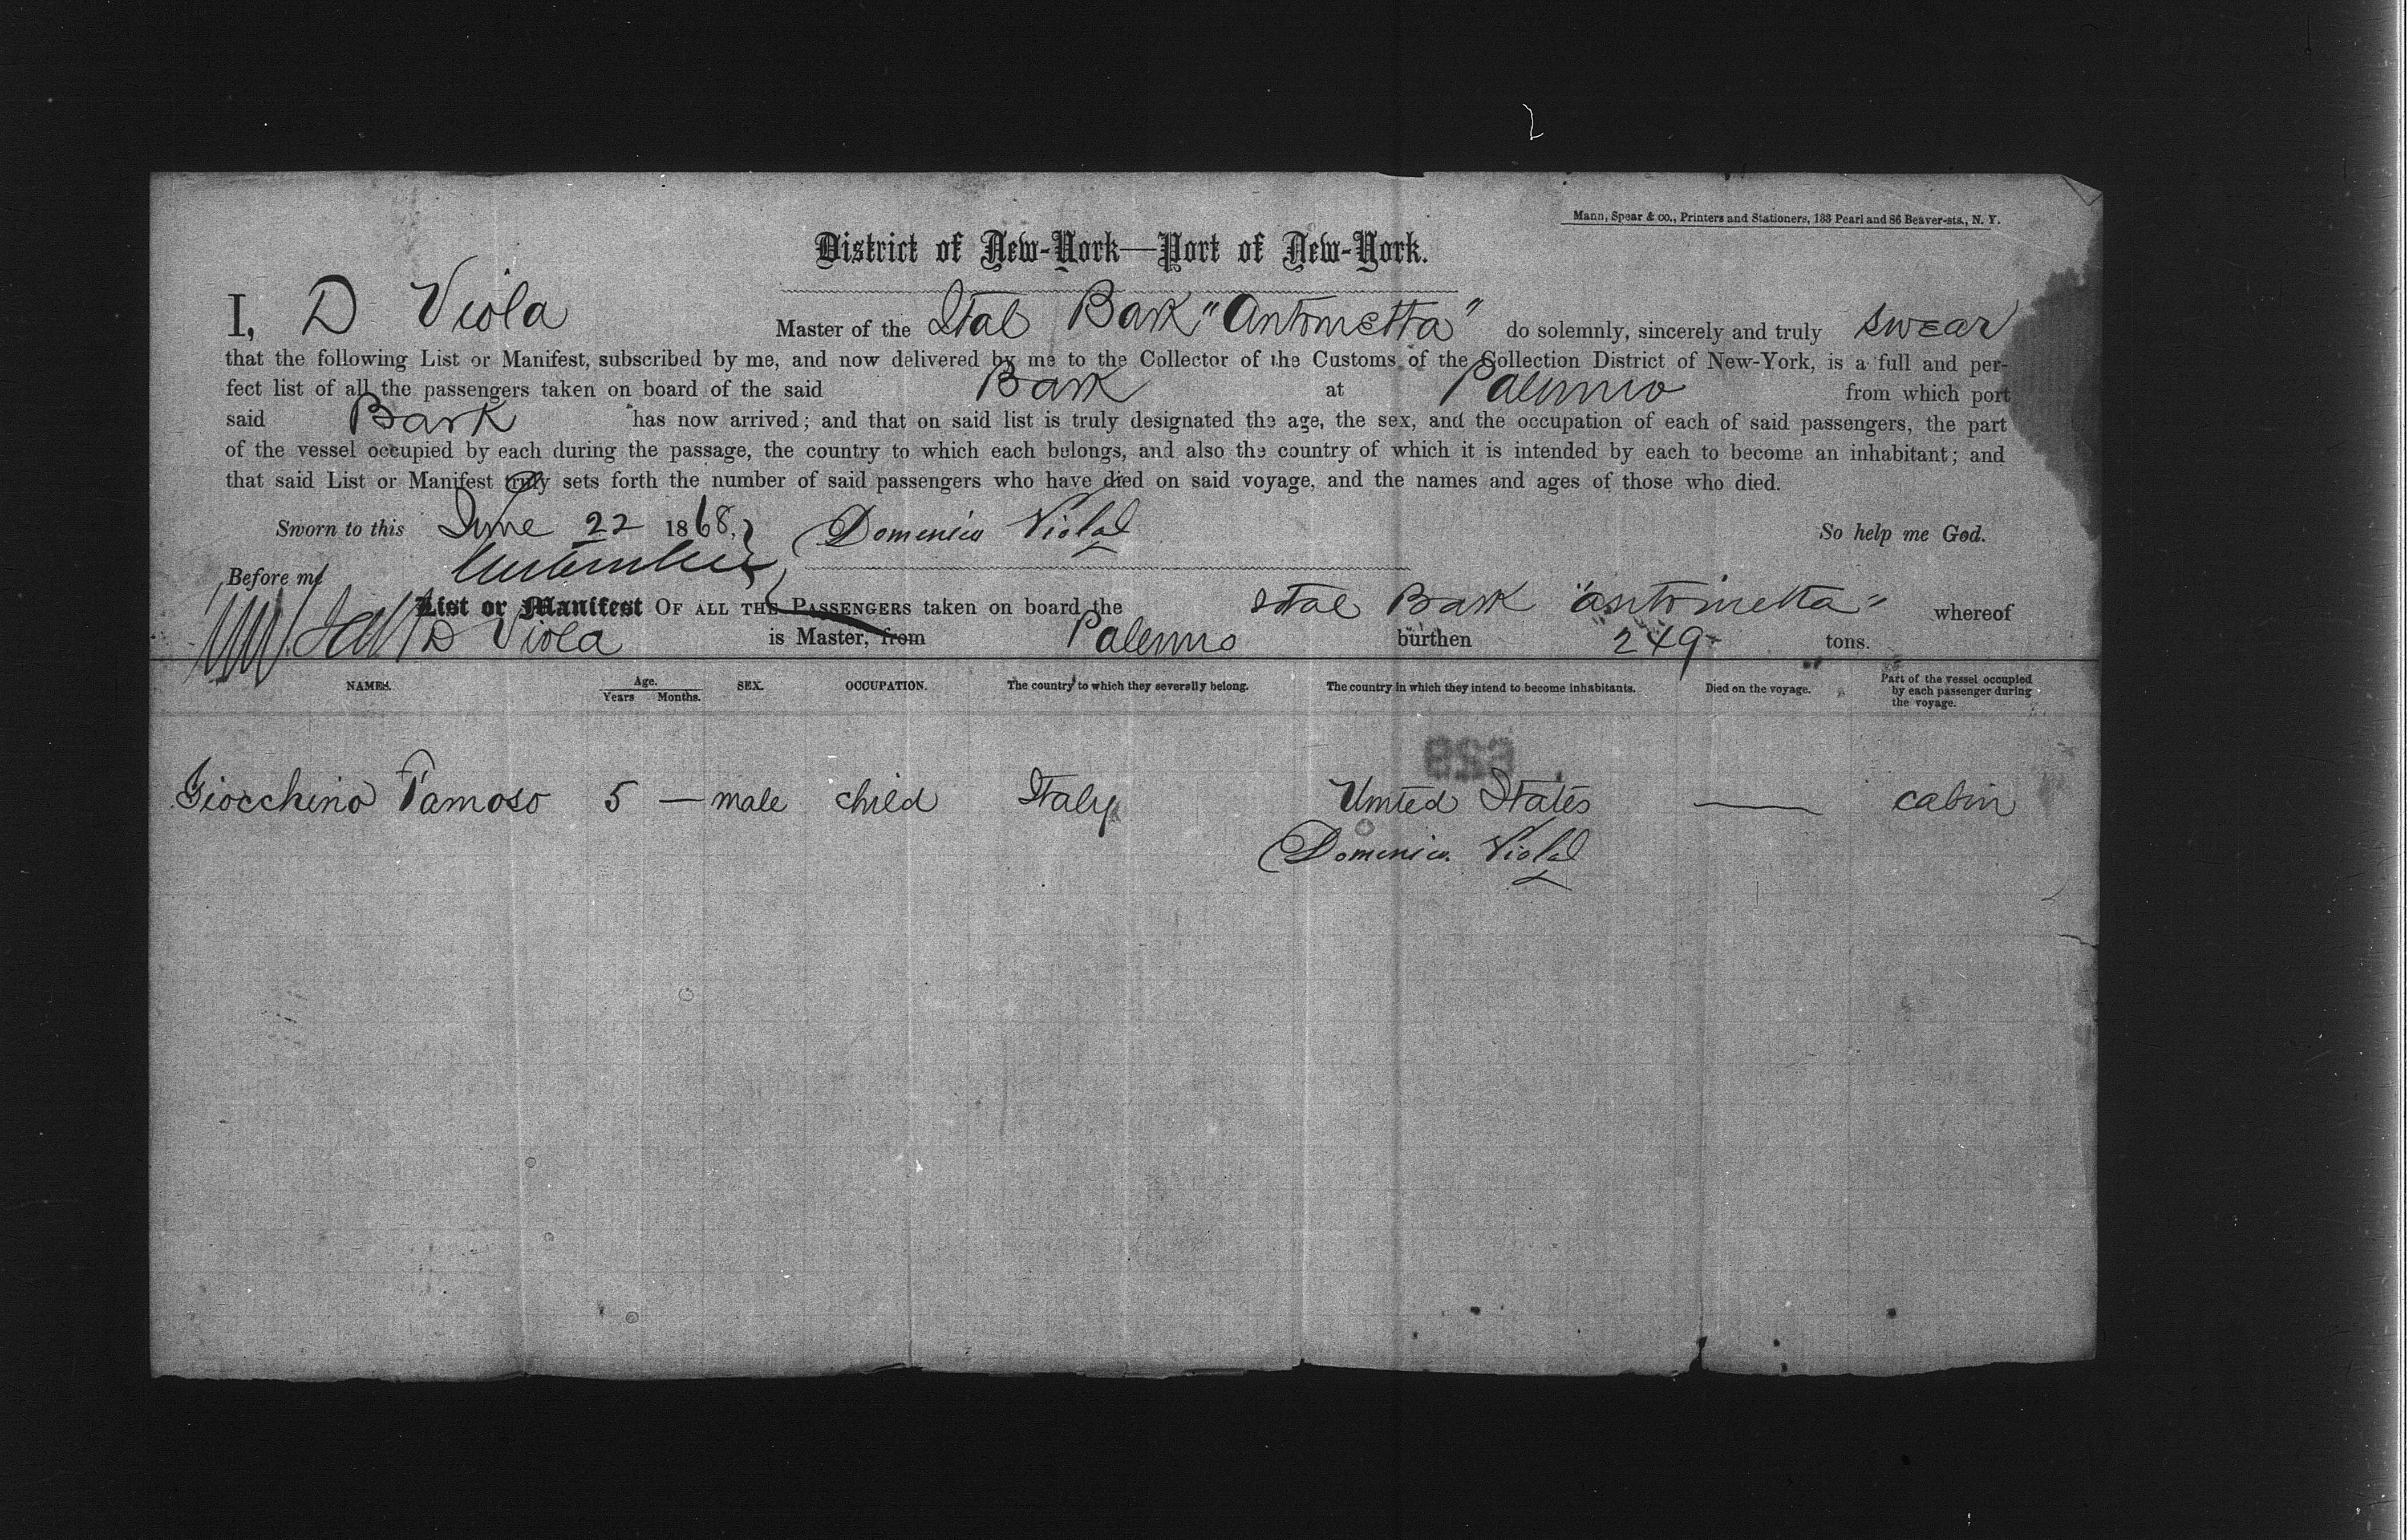 Mann, Spear & co., Printers and Stationers, 133 Pearl and 86 Beaver-sts., N. Y.
District of New-York—Port of New-York.
I, D Viola Master of the Ital Bark "Antonietta" do solemnly, sincerely and truly swear
that the following List or Manifest, subscribed by me, and now delivered by me to the Collector of the Customs of the Collection District of New-York, is a full and per-
fect list of all the passengers taken on board of the said Bark at Palermo from which port
said Bark has now arrived; and that on said list is truly designated the age, the sex, and the occupation of each of said passengers, the part
of the vessel occupied by each during the passage, the country to which each belongs, and also the country of which it is intended by each to become an inhabitant; and
that said List or Manifest truly sets forth the number of said passengers who have died on said voyage, and the names and ages of those who died.
Sworn to this June 22 1868, Domenico Viola So help me God.
Before me
List or Manifest OF ALL THE PASSENGERS taken on board the Ital Bark "Antonietta" whereof
D Viola is Master, from Palermo burthen 249 tons.
NAMES. Age. Years Months. SEX. OCCUPATION. The country to which they severally belong. The country in which they intend to become inhabitants. Died on the voyage. Part of the vessel occupied by each passenger during the voyage.
Giocchino Tamoso 5 — male child Italy United States — cabin
Domenico Viola